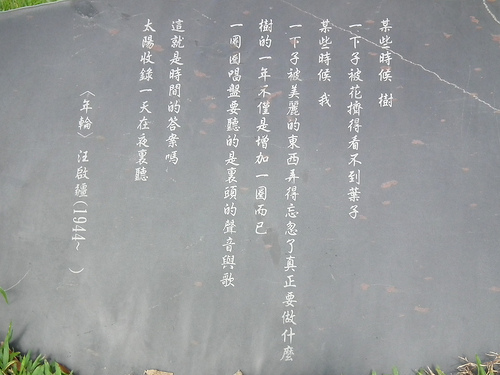 某些時候 樹
一下子被花擠得看不到葉子
某些時候 我
一下子被美麗的東西弄得忘忽了真正要做什麼
樹的一年不僅是增加一圈而已
一圈圈唱盤要聽的是裏頭的聲音與歌
這就是時間的答案嗎
太陽收錄一天在夜裏聽
〈年輪〉 汪啟疆(1944~ )